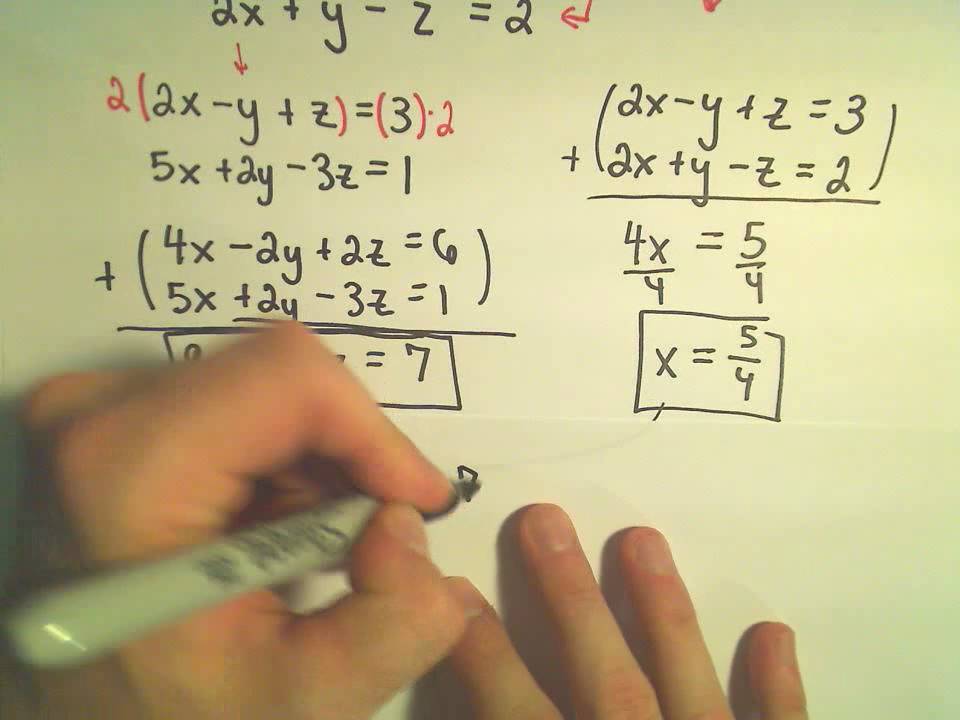 2x + y - z = 2
2(2x - y + z) = (3)·2
5x + 2y - 3z = 1
+ (4x - 2y + 2z = 6
5x + 2y - 3z = 1)
= 7
(2x - y + z = 3
+ 2x + y - z = 2)
4x = 5
4 4
x = 5
4